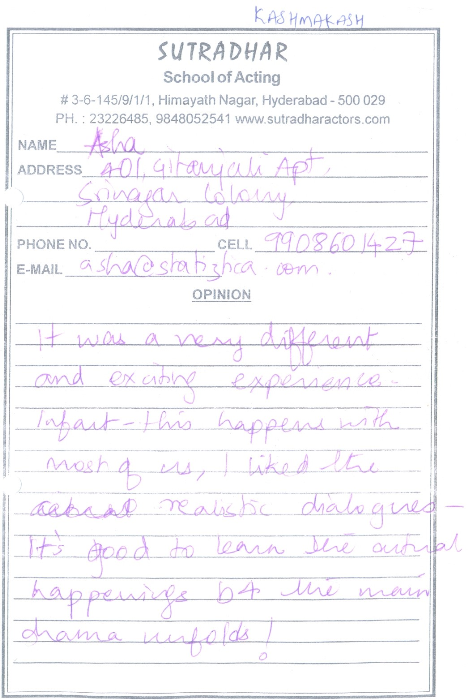 KASHMAKASH
SUTRADHAR
School of Acting
# 3-6-145/9/1/1, Himayath Nagar, Hyderabad - 500 029
PH. : 23226485, 9848052541 www.sutradharactors.com
NAME Asha
ADDRESS 401, Gitanjali Apt,
Srinagar Colony,
Hyderabad
PHONE NO. CELL 9908601427
E-MAIL asha@statiztica.com.
OPINION
It was a very different
and exciting experience.
Infact - this happens with
most of us, I liked the
realistic dialogues -
It's good to learn the actual
happenings b4 the main
drama unfolds!